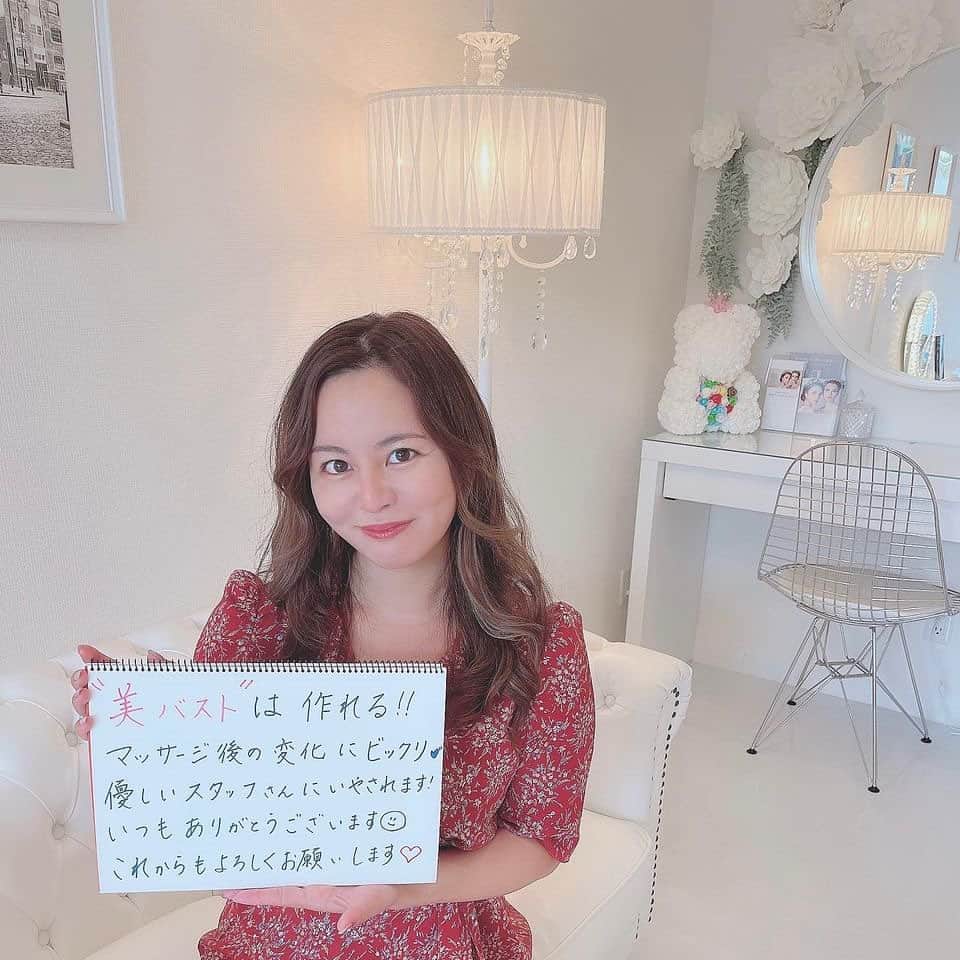 "美バスト"は作れる!!
マッサージ後の変化にビックリ♥
優しいスタッフさんにいやされます!
いつもありがとうございます☺
これからもよろしくお願いします♡